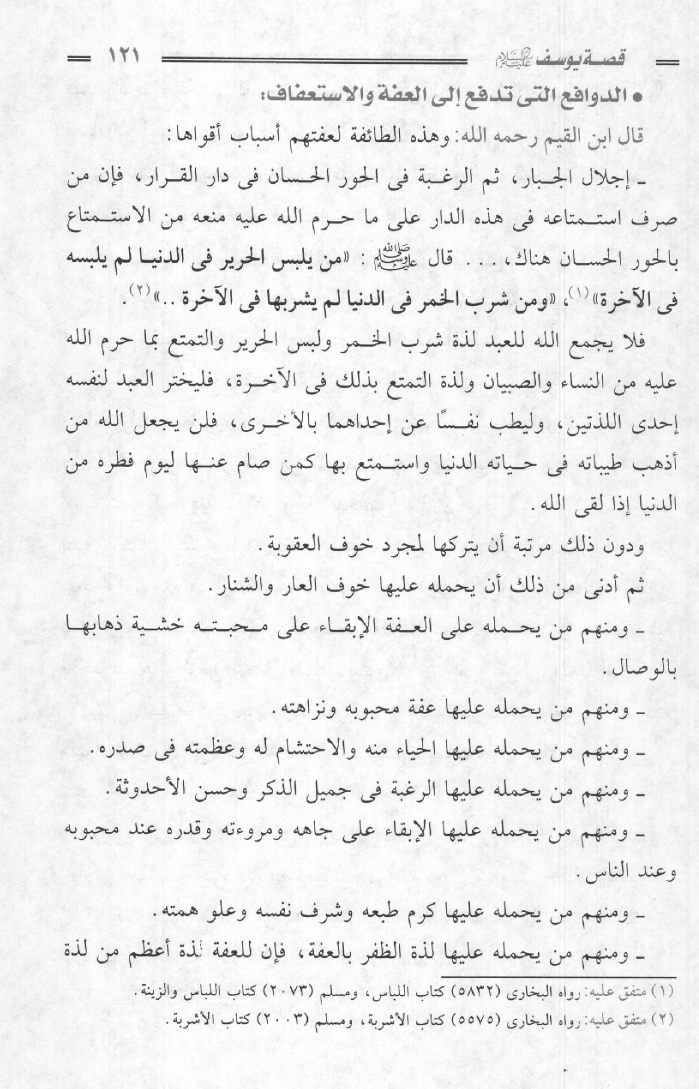 قصة يوسف عليه السلام
١٢١
• الدوافع التى تدفع إلى العفة والاستعفاف:
قال ابن القيم رحمه الله: وهذه الطائفة لعفتهم أسباب أقواها:
ـ إجلال الجبار، ثم الرغبة فى الحور الحسان فى دار القرار، فإن من
صرف استمتاعه فى هذه الدار على ما حرم الله عليه منعه من الاستمتاع
بالحور الحسان هناك، ... قال ﷺ: «من يلبس الحرير فى الدنيا لم يلبسه
فى الآخرة»(١)، «ومن شرب الخمر فى الدنيا لم يشربها فى الآخرة ..»(٢).
فلا يجمع الله للعبد لذة شرب الخمر ولبس الحرير والتمتع بما حرم الله
عليه من النساء والصبيان ولذة التمتع بذلك فى الآخرة، فليختر العبد لنفسه
إحدى اللذتين، وليطب نفسًا عن إحداهما بالأخرى، فلن يجعل الله من
أذهب طيباته فى حياته الدنيا واستمتع بها كمن صام عنها ليوم فطره من
الدنيا إذا لقى الله.
ودون ذلك مرتبة أن يتركها لمجرد خوف العقوبة.
ثم أدنى من ذلك أن يحمله عليها خوف العار والشنار.
ـ ومنهم من يحمله على العفة الإبقاء على محبته خشية ذهابها
بالوصال.
ـ ومنهم من يحمله عليها عفة محبوبه ونزاهته.
ـ ومنهم من يحمله عليها الحياء منه والاحتشام له وعظمته فى صدره.
ـ ومنهم من يحمله عليها الرغبة فى جميل الذكر وحسن الأحدوثة.
ـ ومنهم من يحمله عليها الإبقاء على جاهه ومروءته وقدره عند محبوبه
وعند الناس.
ـ ومنهم من يحمله عليها كرم طبعه وشرف نفسه وعلو همته.
ـ ومنهم من يحمله عليها لذة الظفر بالعفة، فإن للعفة لذة أعظم من لذة
(١) متفق عليه: رواه البخارى (٥٨٣٢) كتاب اللباس، ومسلم (٢٠٧٣) كتاب اللباس والزينة.
(٢) متفق عليه: رواه البخارى (٥٥٧٥) كتاب الأشربة، ومسلم (٢٠٠٣) كتاب الأشربة.